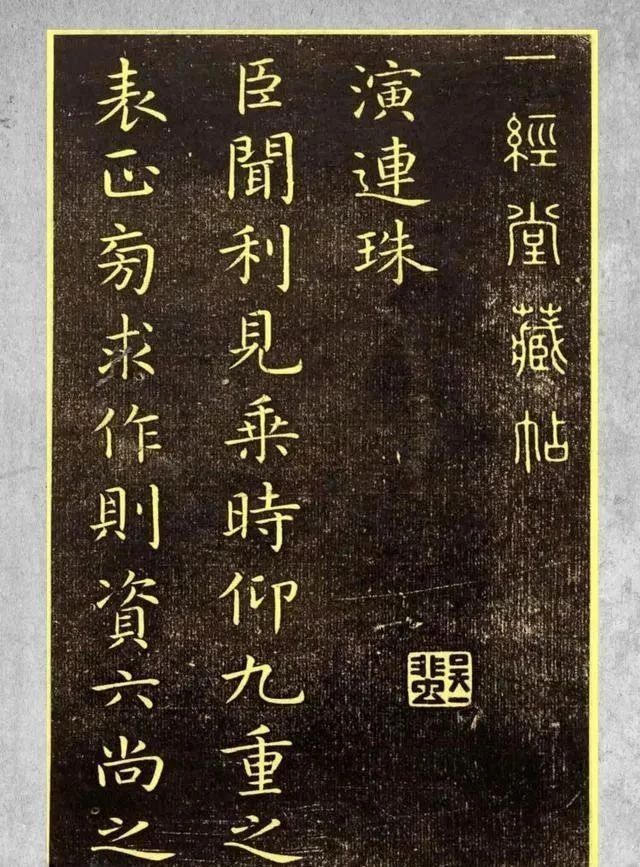 一經堂藏帖
演連珠
臣聞利見乗時仰九重之
表正㫄求作則資六尚之
吴一蜚